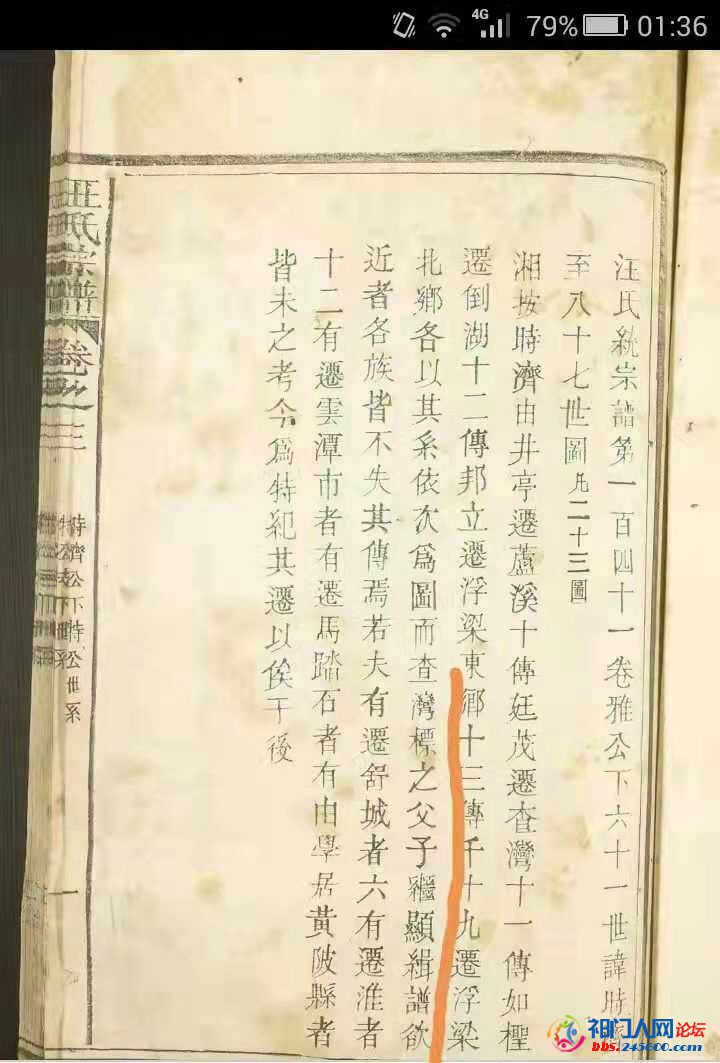 4G 79% 01:36
汪氏統宗譜第一百四十一卷雅公下六十一世諱時濟
至八十七世圖凡二十三圖
湘按時濟由井亭遷蘆溪十傳廷茂遷查灣十一傳如檉
遷倒湖十二傳邦立遷浮梁東鄉十三傳千十九遷浮梁
北鄉各以其系依次爲圖而查灣標之父子繼顯緝譜欲
近者各族皆不失其傳焉若夫有遷舒城者六有遷淮者
十二有遷雲潭市者有遷馬踏石者有由學居黄陂縣者
皆未之考今爲特紀其遷以俟于後
汪氏宗譜
卷之
三
時濟公下持公世系
一
祁门人网论坛
bbs.245600.com